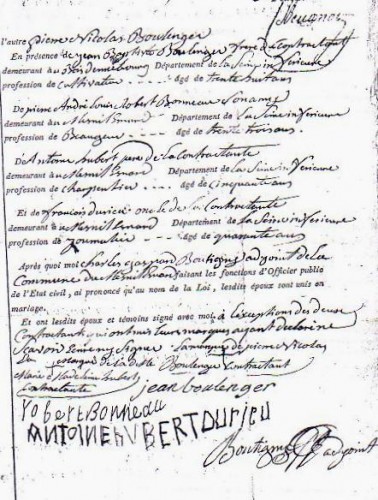 l'autre pierre Nicolas Boulenger
En présence de jean Baptiste Boulenger frere du contractant
demeurant a Département de la Seine inférieure
profession de cultivateur - - - âgé de trente huit ans
De pierre André Louis Robert Bonneau son ami
demeurant a Menil Esnard Département de la Seine inférieure
profession de - - - - âgé de trente trois ans.
De Antoine hubert pere de la contractante
demeurant a Menil Esnard Département de la Seine inférieure
profession de charpentier - - - - âgé de cinquante ans
Et de françois durieu oncle de la contractante
demeurant a Menil Esnard Département de la Seine inférieure
profession de journalier - - - âgé de quarante ans
Après quoi moi Charles gaspar Boutigny adjoint de la
Commune du faisant les fonctions d'Officier public
de l'Etat civil, ai prononcé qu'au nom de la Loi, lesdits époux sont unis en
mariage.
Et ont lesdits époux et témoins signé avec moi à l'exceptions des deux
Contractant qui ont mis leurs marques ayant declarée
la marque de pierre Nicolas
Boulenger Contractant
Marie Madeleine hubert
Contractante
jean boulenger
robert Bonneau
ANTOINE hVBERT DURIEU
Boutigny adjoint